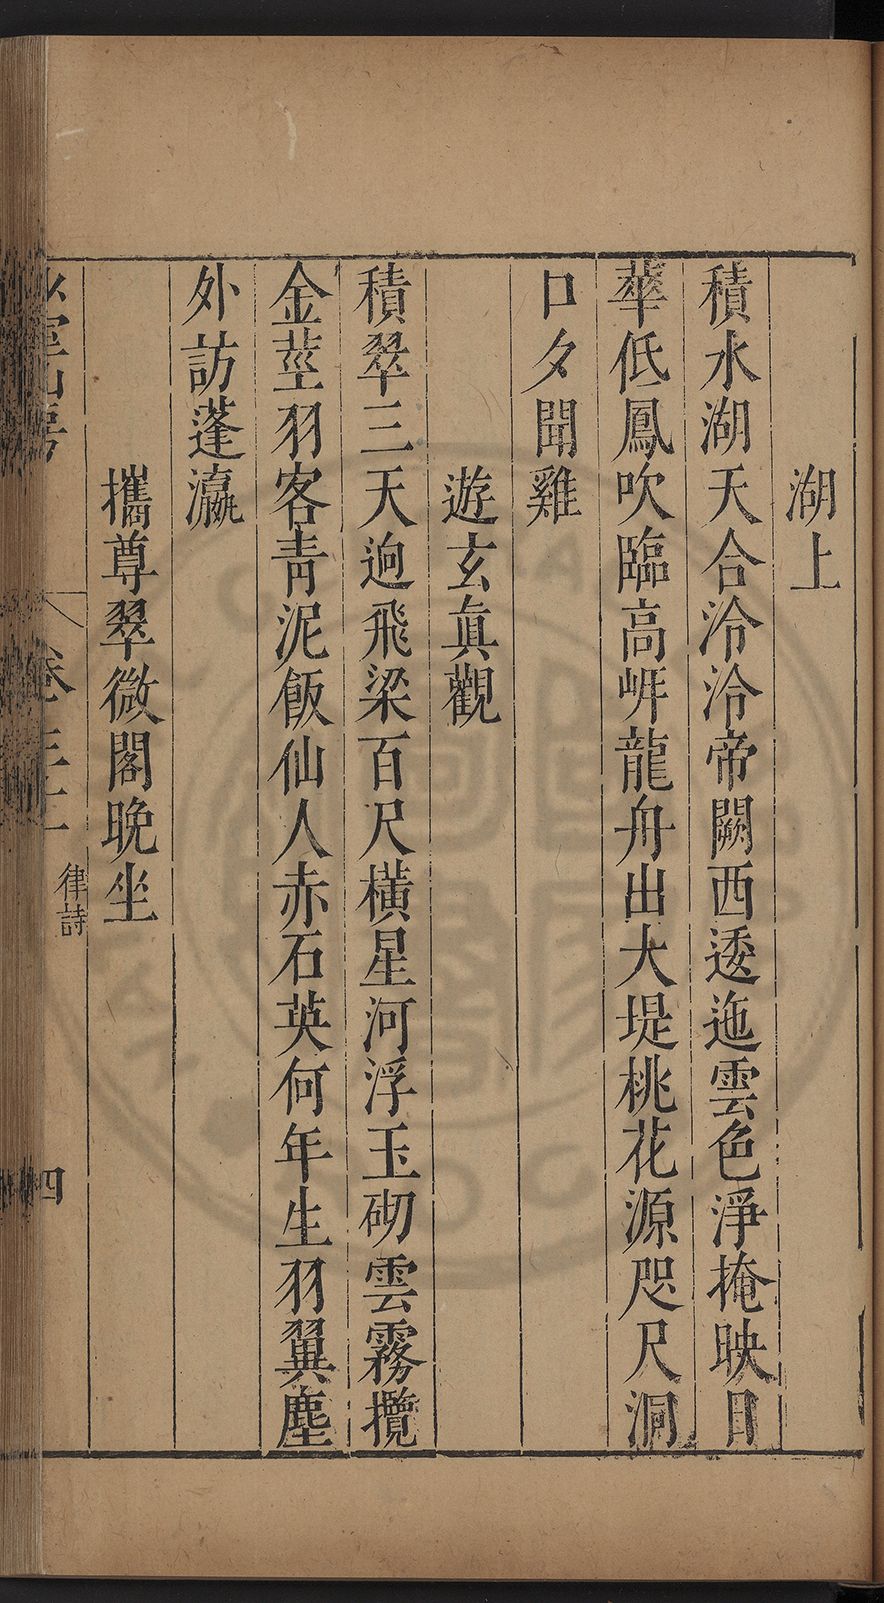 湖上
積水湖天合泠泠帝闕西逶迤雲色淨掩映日
華低鳳吹臨高岸龍舟出大堤桃花源咫尺洞
口夕聞雞
遊玄真觀
積翠三天逈飛梁百尺橫星河浮玉砌雲霧攬
金莖羽客青泥飯仙人赤石英何年生羽翼塵
外訪蓬瀛
攜尊翠微閣晚坐
卷之三
律詩
四